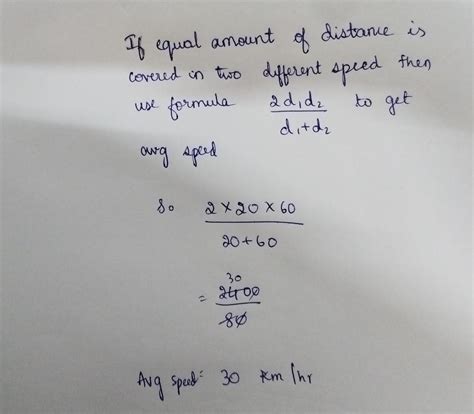 If equal amount of distance is
covered in two different speed then
use formula 2d₁d₂ / d₁+d₂ to get
avg speed
So 2×20×60
20+60
30
= 2400
80
Avg Speed: 30 km/hr